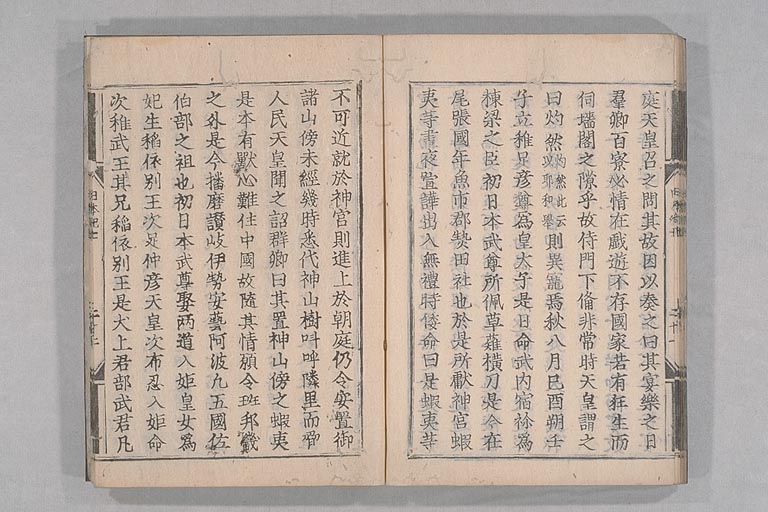 庭天皇召之問其故因以奏之曰其宴樂之日
羣卿百寮必情在戲遊不存國家若有狂生而
伺墻閤之隙乎故侍門下俻非常時天皇謂之
曰灼然灼然此云以耶知舉則異寵焉秋八月己酉朔壬
子立稚足彦尊為皇太子是日命武内宿祢為
棟梁之臣初日本武尊所佩草薙横刀是今在
尾張國年魚市郡𤍠田社也於是所獻神宮蝦
夷等晝夜喧譁出入無禮時倭命曰是蝦夷等
不可近就於神宮則進上於朝庭仍令安置御
諸山傍未經幾時悉代神山樹叫呼隣里而脅
人民天皇聞之詔群卿曰其置神山傍之蝦夷
是本有獸心難住中國故隨其情願令班邦畿
之外是今播磨讃岐伊勢安藝阿波九五國佐
伯部之祖也初日本武尊娶两道入姫皇女為
妃生稲依别王次足仲彦天皇次布忍入姫命
次稚武王其兄稲依别王是犬上君部武君凡